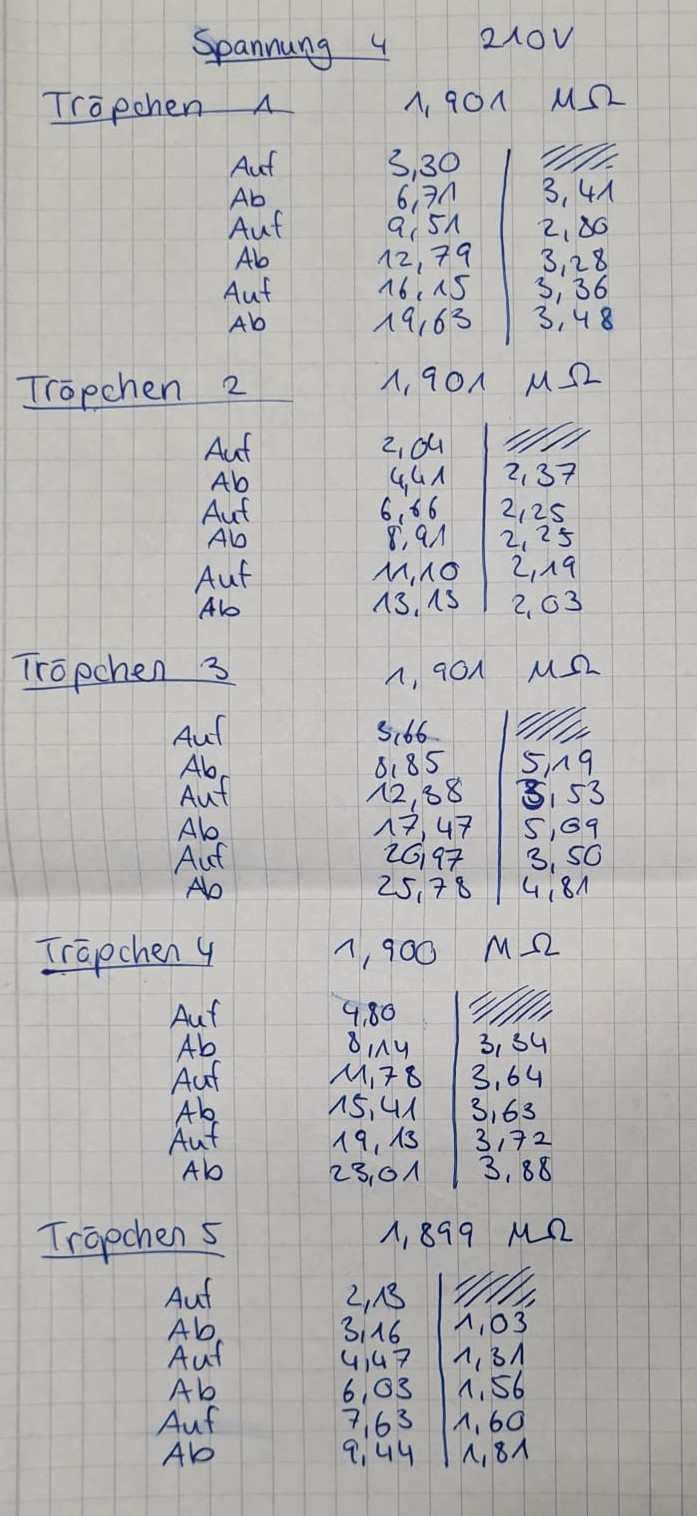 Spannung 4 210V
Tröpchen 1 1,901 MΩ
Auf 3,30
Ab 6,71 3,41
Auf 9,51 2,80
Ab 12,79 3,28
Auf 16,15 3,36
Ab 19,63 3,48
Tröpchen 2 1,901 MΩ
Auf 2,04
Ab 4,41 2,37
Auf 6,66 2,25
Ab 8,91 2,25
Auf 11,10 2,19
Ab 13,13 2,03
Tröpchen 3 1,901 MΩ
Auf 3,66
Ab 8,85 5,19
Auf 12,38 3,53
Ab 17,47 5,09
Auf 20,97 3,50
Ab 25,78 4,81
Tröpchen 4 1,900 MΩ
Auf 4,80
Ab 8,14 3,34
Auf 11,78 3,64
Ab 15,41 3,63
Auf 19,13 3,72
Ab 23,01 3,88
Tröpchen 5 1,899 MΩ
Auf 2,13
Ab 3,16 1,03
Auf 4,47 1,31
Ab 6,03 1,56
Auf 7,63 1,60
Ab 9,44 1,81